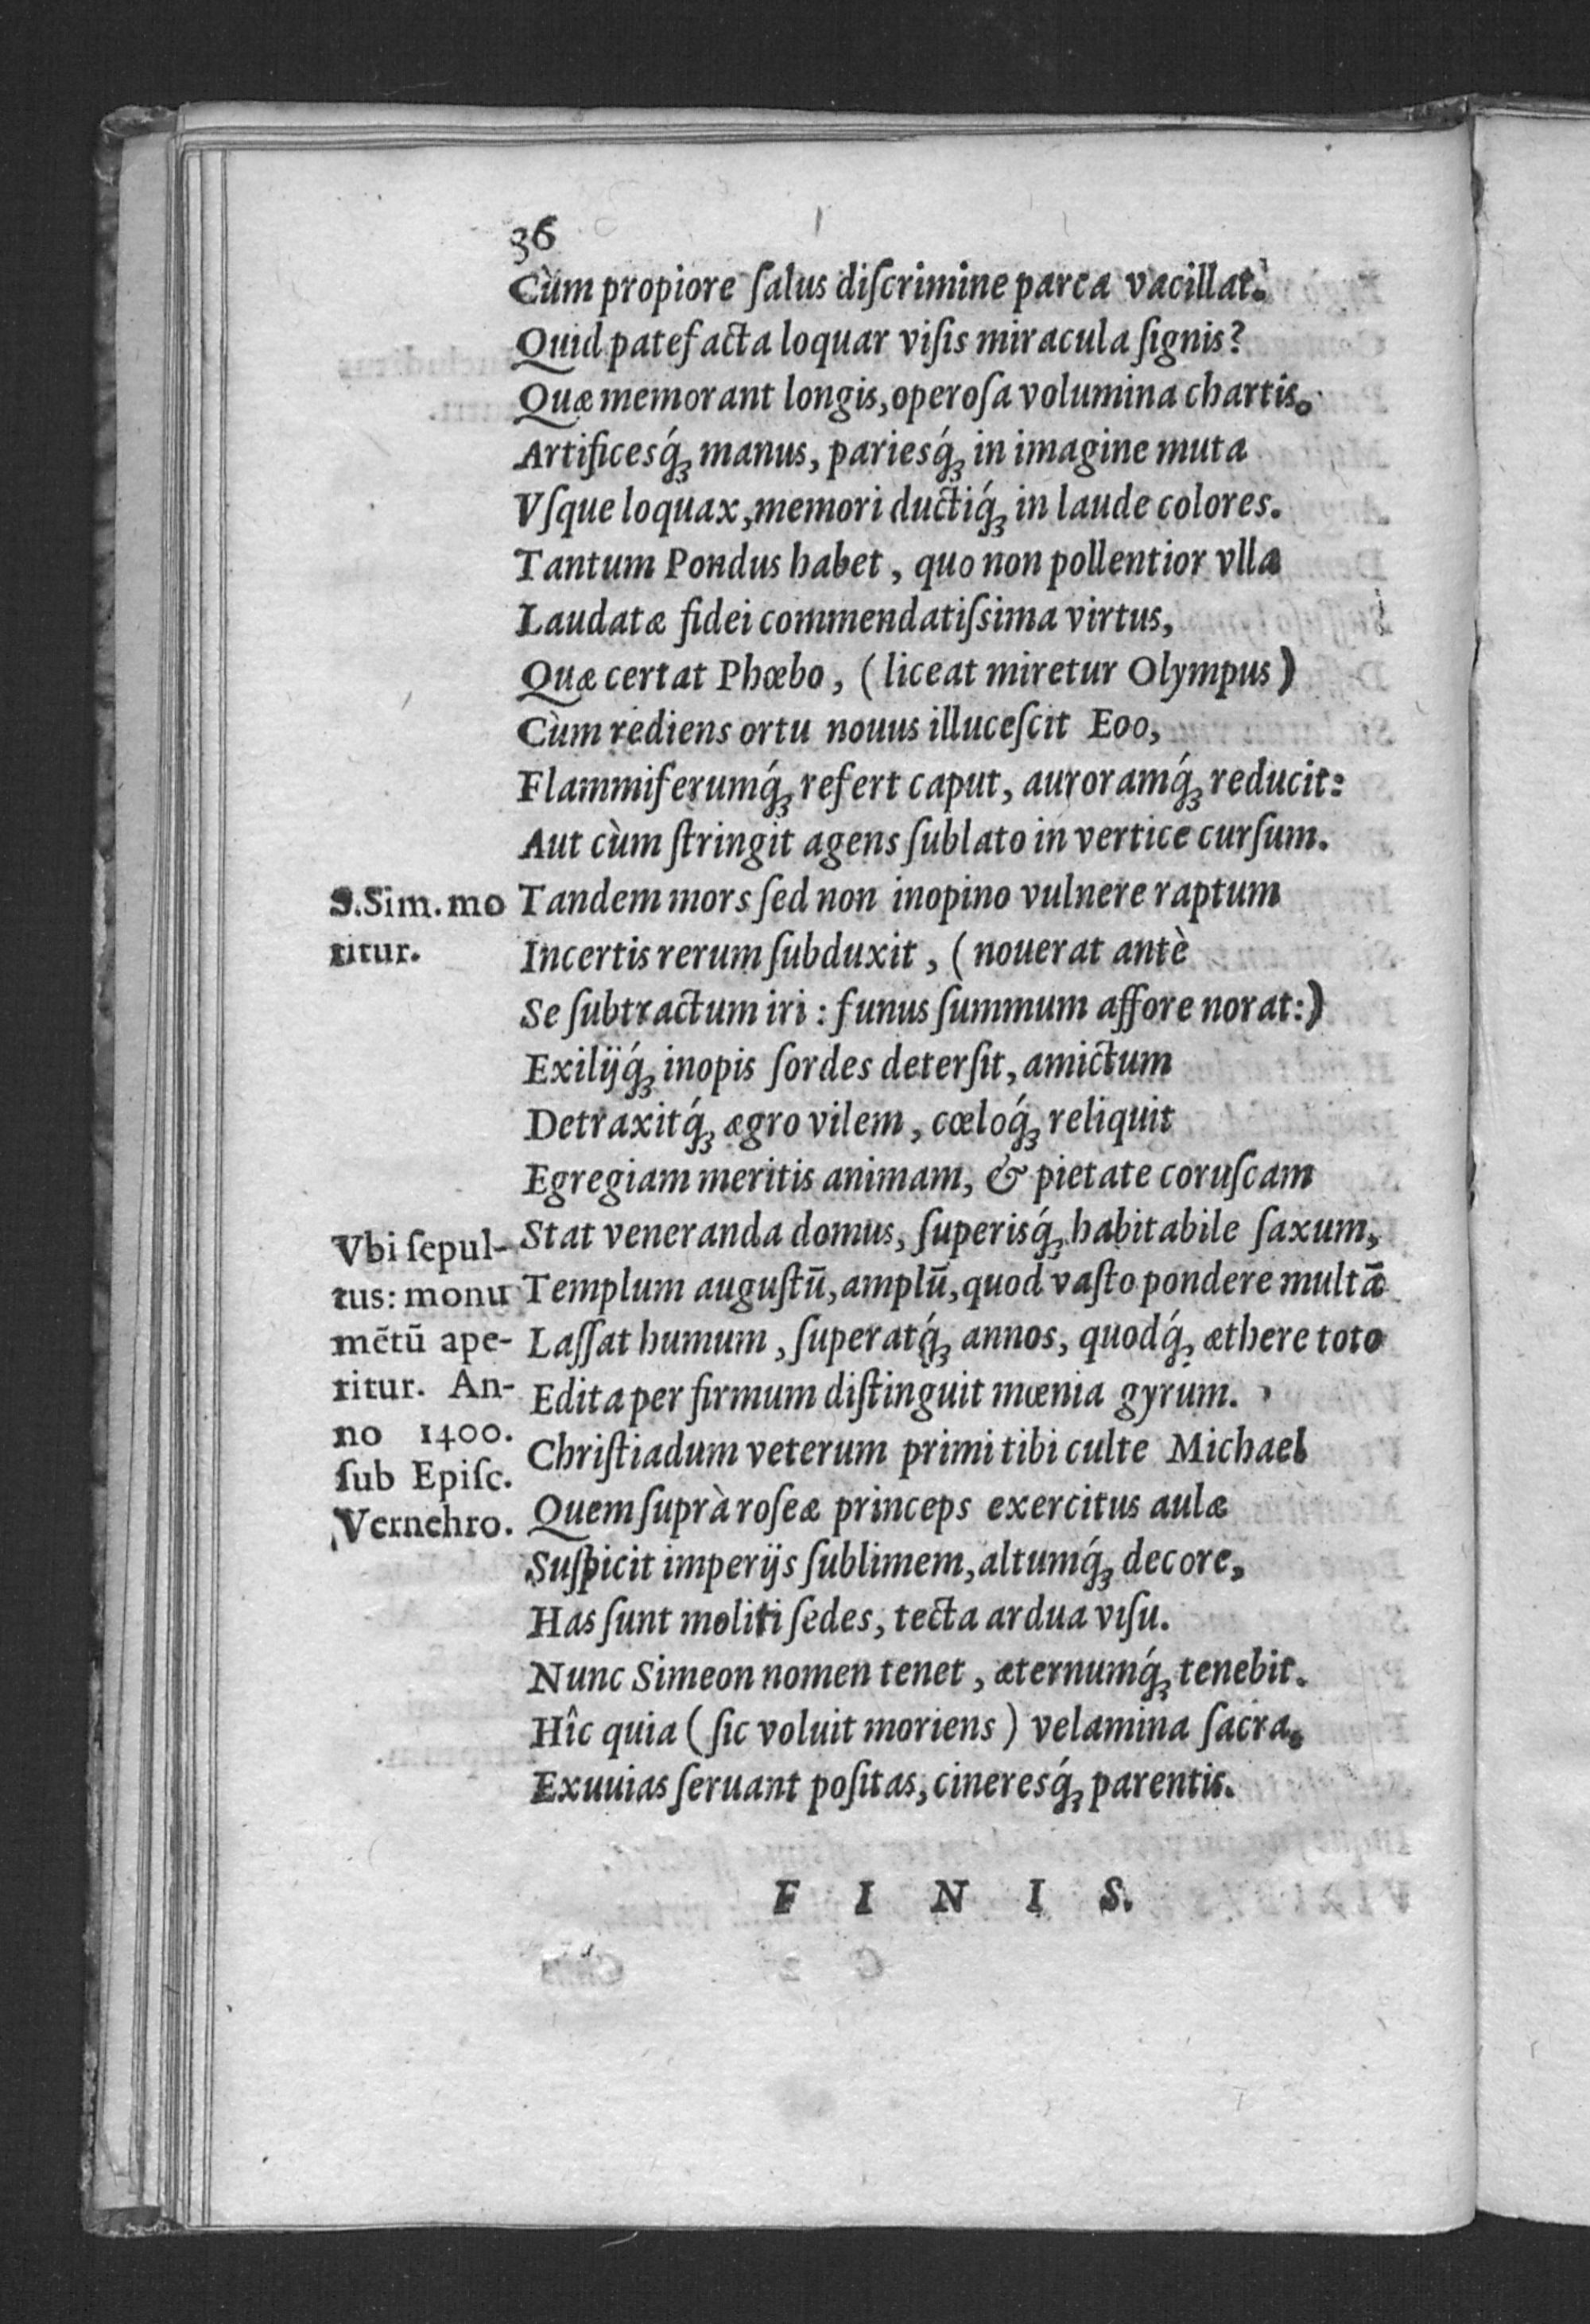 36
Cùm propiore ſalus diſcrimine parca vacillat.
Quid patefacta loquar viſis miracula ſignis?
Quæ memorant longis, operoſa volumina chartis.
Artificesq́ꝫ manus, pariesq́ꝫ in imagine muta
Vſque loquax, memori ductiq́ꝫ in laude colores.
Tantum Pondus habet, quo non pollentior vlla
Laudatæ fidei commendatiſsima virtus,
Quæ certat Phœbo, (liceat miretur Olympus)
Cùm rediens ortu nouus illuceſcit Eoo,
Flammiferumq́ꝫ refert caput, auroramq́ꝫ reducit:
Aut cùm ſtringit agens ſublato in vertice curſum.
S. Sim. mo
ritur.
Tandem mors ſed non inopino vulnere raptum
Incertis rerum ſubduxit, (nouerat antè
Se ſubtractum iri: funus ſummum affore norat:)
Exilijq́ꝫ inopis ſordes deterſit, amictum
Detraxitq́ꝫ ægro vilem, cœloq́ꝫ reliquit
Egregiam meritis animam, & pietate coruſcam
Vbi ſepul-
tus: monu
mẽtũ ape-
ritur. An-
no 1400.
ſub Epiſc.
Vernehro.
Stat veneranda domus, ſuperisq́ꝫ habitabile ſaxum,
Templum auguſtũ, amplũ, quod vaſto pondere multã
Laſſat humum, ſuperatq́ꝫ annos, quodq́ꝫ æthere toto
Edita per firmum diſtinguit mœnia gyrum.
Chriſtiadum veterum primi tibi culte Michael
Quem ſuprà roſeæ princeps exercitus aulæ
Suſpicit imperijs ſublimem, altumq́ꝫ decore,
Has ſunt moliti ſedes, tecta ardua viſu.
Nunc Simeon nomen tenet, æternumq́ꝫ tenebit.
Hîc quia (ſic voluit moriens) velamina ſacra.
Exuuias ſeruant poſitas, cineresq́ꝫ parentis.
F I N I S.